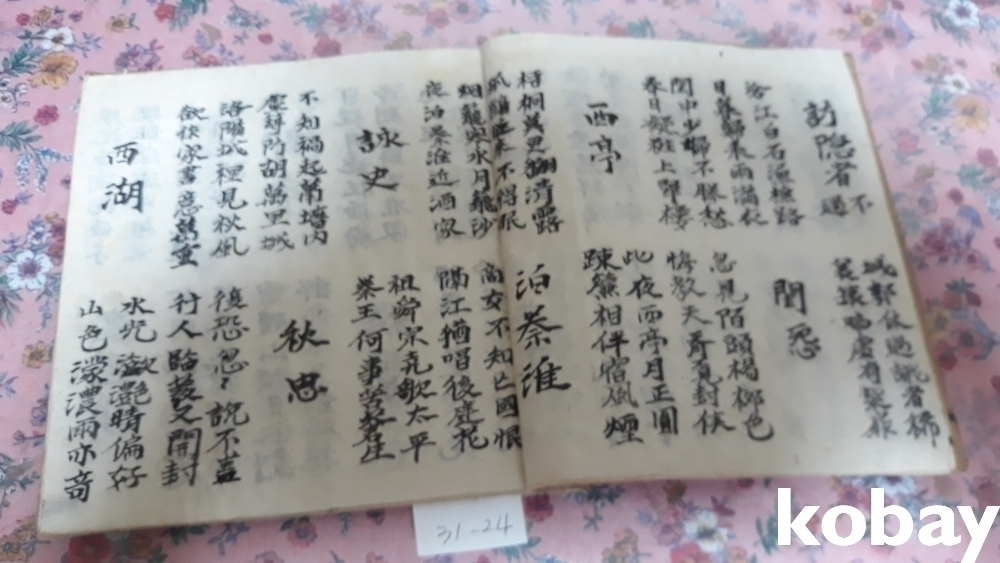 訪隱者不遇
城郭休過識者稀
哀猿啼處有柴扉
滄江白石漁樵路
日暮歸來雨滿衣
閨怨
閨中少婦不勝愁
春日凝粧上翠樓
忽見陌頭楊柳色
悔教夫壻覓封侯
西亭
此夜西亭月正圓
踈簾相伴宿風煙
梧桐莫更翻清露
不得眠
泊秦淮
烟籠寒水月籠沙
夜泊秦淮近酒家
商女不知亡國恨
隔江猶唱後庭花
詠史
祖舜宗堯歌太平
秦王何事苦蒼生
不知禍起蕭墻內
虛封防胡萬里城
秋思
洛陽城裡見秋風
欲作家書意萬重
復恐忽〻說不盡
行人臨發又開封
西湖
水光瀲灩晴偏好
山色濛濃雨亦奇
31-24
kobay